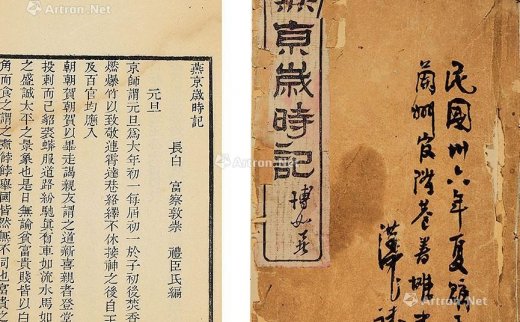 燕京歲時記
長白 富察敦崇 禮臣氏編
元旦
京師謂元旦爲大年初一每屆初一於子初後焚香
燃爆竹以致敬連霄達巷絡繹不休接神之後自王
及百官均應入
朝朝賀朝賀以畢走謁親友謂之道新喜親者登堂
投刺而已貂裘蟒服道路紛馳眞有車如流水馬如
之盛誠太平之景象也是日無論貧富貴賤皆以白
角而食之謂之煮餑餑舉國皆然無不同也富貴之
民國卅六年夏
蘭州官
燕京歲時記
雅昌·艺术网
Artron.Net